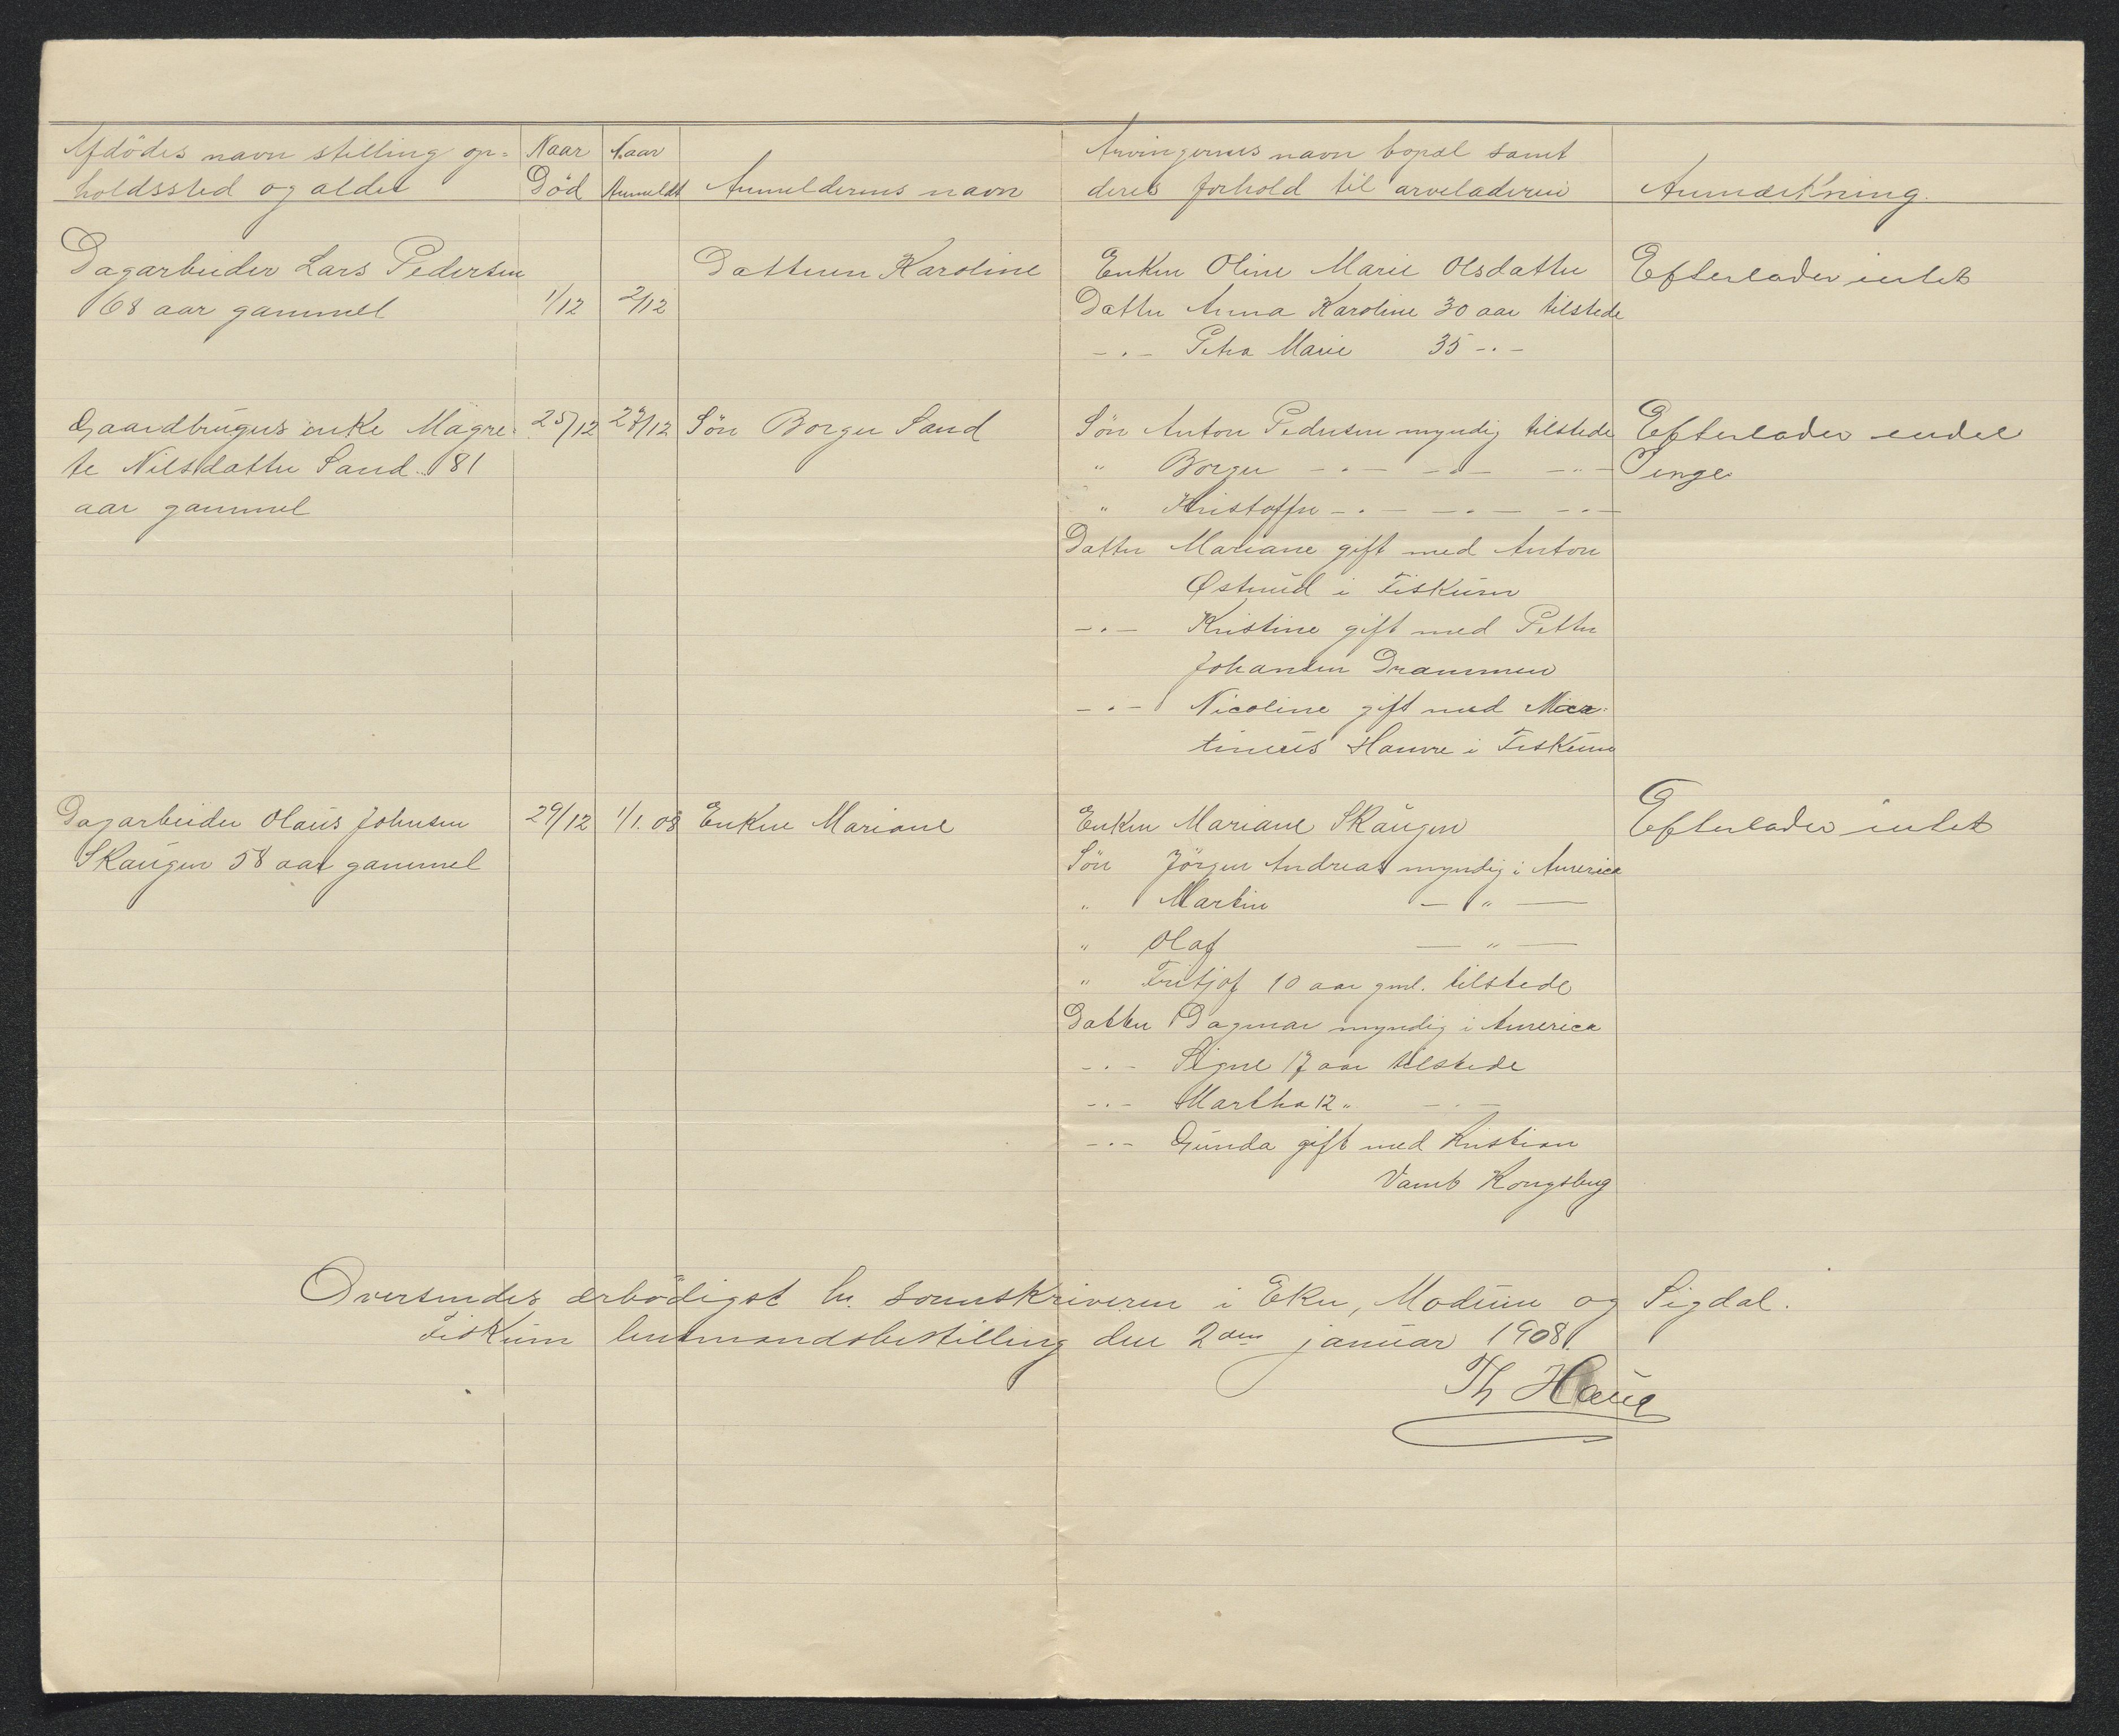 Afdödes navn stilling op-
holdssted og alder
Naar
Död
Naar
Anmeldt
Anmelderens navn
Arvingernes navn bopæl samt
deres forhold til arveladeren
Anmærkning.
Dagarbeider Lars Pedersen
68 aar gammel
1/12
2/12
Datteren Karoline
Enken Oline Marie Olsdatter
Datter Anna Karoline 30 aar tilstede
-.- Petra Marie 35 -.-
Efterlader intet
Gaardbrugers enke Magre-
te Nilsdatter Sand 81
aar gammel
25/12
27/12
Sön Borger Sand
Sön Anton Pedersen myndig tilstede
" Borger -.- -.- -.-
" Kristoffer -.- -.- -.-
Datter Mariane gift med Anton
Østerud i Fiskum
-.- Kristine gift med Petter
Johansen Drammen
-.- Nicoline gift med Mar-
tinius Hamre i Fiskum
Efterlader endel
Penge
Dagarbeider Olaus Johnsen
Skaugen 58 aar gammel
29/12
1/1.08
Enken Mariane
Enken Mariane Skaugen
Sön Jörgen Andreas myndig i America
" Martin — " —
" Olaf — " —
" Fritjof 10 aar gml. tilstede
Datter Dagmar myndig i America
-.- Signe 17 aar tilstede
-.- Martha 12 " -.-
-.- Gunda gift med Kristian
Kongsberg
Efterlader intet
Oversendes ærbödigst hr. sorenskriveren i Eker, Modum og Sigdal.
Fiskum lensmandsbestilling den 2den januar 1908.
Th Haug